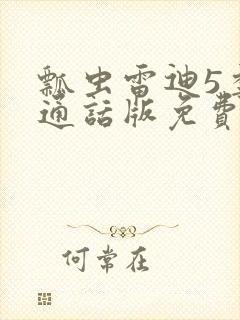 瓢虫雷迪5
通話版免費
何常在